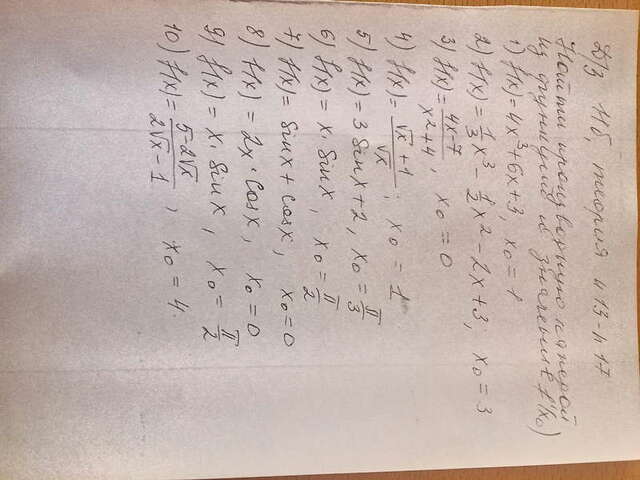 Д/З Н б, теория п 13-п 17
Найти производную каждой
из функций и значение f'(x₀)
1) f(x) = 4x³+6x+3, x₀ = 1
2) f(x) = 1/3 x³ - 1/2 x² - 2x + 3, x₀ = 3
3) f(x) = (4x-7)/(x²+4), x₀ = 0
4) f(x) = (√x + 1)/√x ; x₀ = 1
5) f(x) = 3 sin x + 2, x₀ = π/3
6) f(x) = x · sin x, x₀ = π/2
7) f(x) = sin x + cos x, x₀ = 0
8) f(x) = 2x · cos x, x₀ = 0
9) f(x) = x · sin x, x₀ = π/2
10) f(x) = (5-2√x)/(2√x - 1), x₀ = 4.